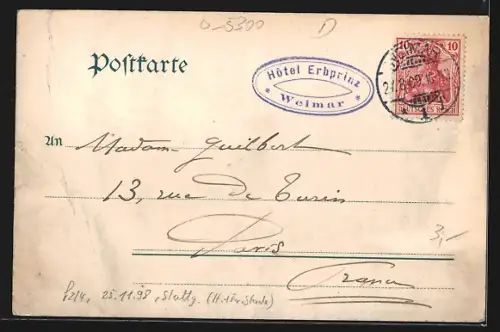 0-5300 D
Postkarte
Hôtel Erbprinz
Weimar
WEIMAR
10 10
1
An Madame Guilbert
13, rue de Turin
Paris
3,-
France
25.11.98, Stuttg.